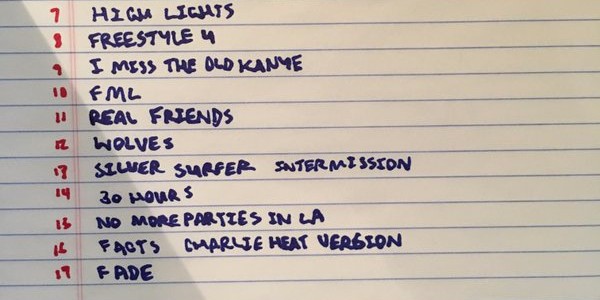 7 HIGH LIGHTS
8 FREESTYLE 4
9 I MISS THE OLD KANYE
10 FML
11 REAL FRIENDS
12 WOLVES
13 SILVER SURFER INTERMISSION
14 30 HOURS
15 NO MORE PARTIES IN LA
16 FACTS CHARLIE HEAT VERSION
17 FADE